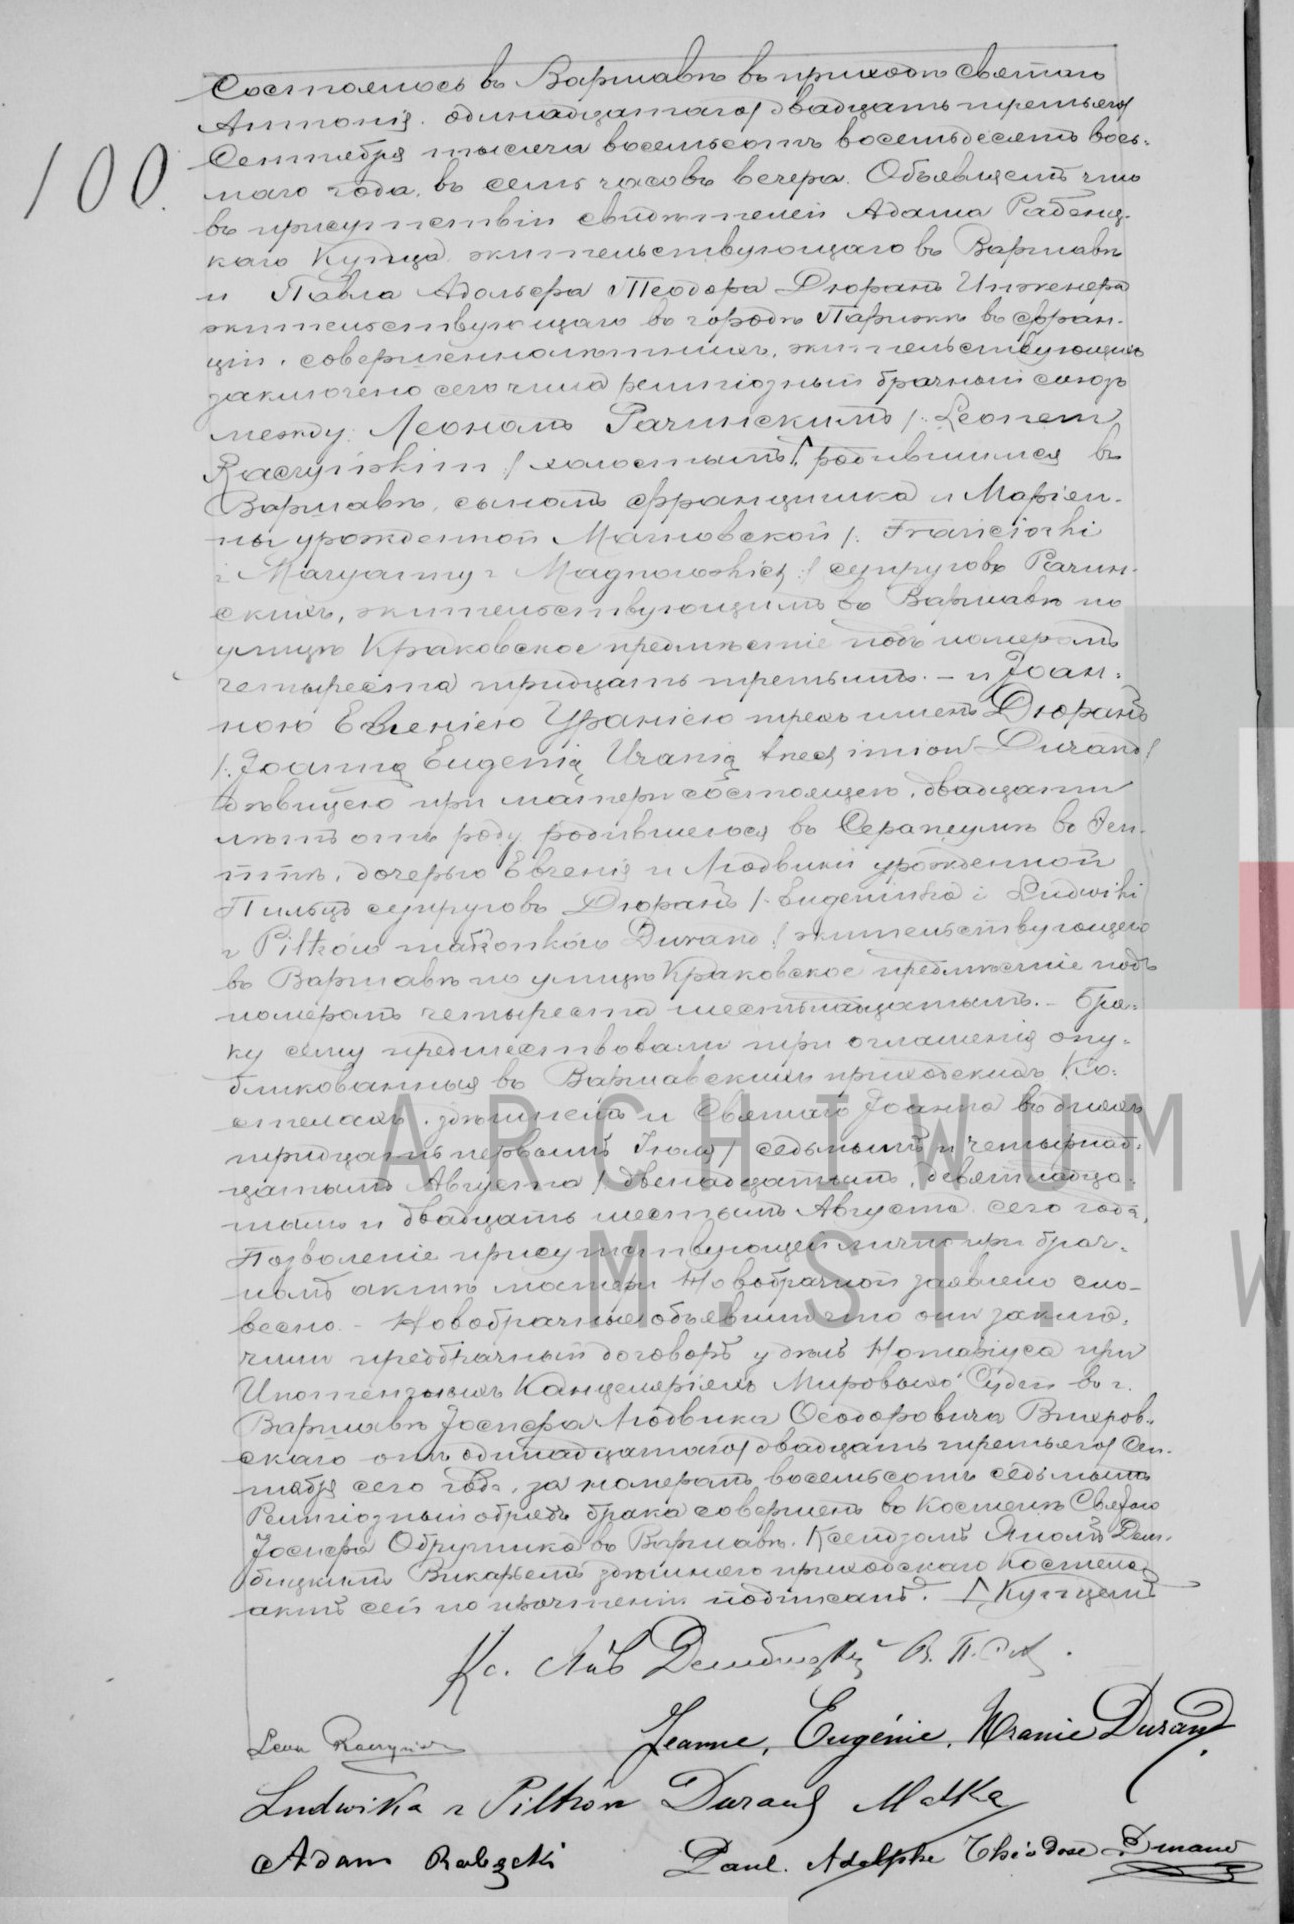 100.
Состоялось въ Варшавѣ въ приходѣ Святаго
Антонія одинадцатаго/двадцать третьяго/
Сентября тысяча восемьсотъ восемьдесятъ вось-
маго года, въ семь часовъ вечера. Объявляемъ что
въ присутствіи свидѣтелей Адама
каго Купца жительствующаго въ Варшавѣ
и Павла Адольфа Теодора Дюранъ Инженера
жительствующаго въ городѣ Парижѣ въ Фран-
ціи, совершеннолѣтнихъ, жительствующихъ
заключено сего числа религіозный брачный союзъ
между Леономъ Рачинскимъ /: Leonem
Raczyńskim :/ холостымъ, родившимся въ
Варшавѣ, сыномъ Францишка и Маріан-
ны урожденной Магновской /: Franciszki
i Maryanny z Magnowskich :/ супруговъ Рачин-
скихъ, жительствующимъ въ Варшавѣ по
улицѣ Краковское предмѣстіе подъ номеромъ
четыреста тридцать третьимъ. – и Іоан-
ною Евгеніею Ураніею трехъ именъ Дюранъ
/: Joanną Eugenią Uranią trzech imion Durand /
дѣвицею при матери состоящею, двадцати
лѣтъ отъ роду родившеюся въ Серапеумѣ въ Еги-
птѣ, дочерью Евгенія и Людвики урожденной
Пильцъ супруговъ Дюранъ /: Eugeniusza i Ludwiki
z Piltzów małżonków Durand :/ жительствующею
въ Варшавѣ по улицѣ Краковское предмѣстіе подъ
номеромъ четыреста шестнадцатымъ. – Бра-
ку сему предшествовали три оглашенія опу-
бликованныя въ Варшавскихъ приходскихъ Ко-
стелахъ, здѣшнемъ и Святаго Іоанна въ дняхъ
тридцать первымъ Іюля / седьмымъ и четырнад-
цатымъ Августа / двенадцатымъ, девятнадца-
тымъ и двадцать шестымъ Августа сего года.
Позволеніе присутствующей лично при брач-
номъ актѣ матери Новобрачной заявлено сло-
весно. – Новобрачные объявили что они заклю-
чили предбрачный договоръ у Нотаріуса при
Ипотечныхъ Канцеляріяхъ Мировыхъ Судей въ г.
Варшавѣ Іосифа Людвика Ѳеодоровича
скаго отъ одинадцатаго/двадцать третьяго/ Сен-
тября сего года, за номеромъ восемьсотъ седьмымъ
Религіозный обрядъ брака совершенъ въ Костелѣ Святаго
Іосифа Обручника въ Варшавѣ. Ксендзомъ Яномъ Дем-
бицкимъ Викаріемъ здѣшняго приходскаго Костела
актъ сей по прочтеніи подписанъ. Купцемъ
Кс. Янъ
Leon Raczyński
Jeanne, Eugénie, Uranie Durand
Ludwika z Piltzów Durand Matka
Adam
Paul. Adolphe Théodore Durand
ARCHIWUM
M. ST. W